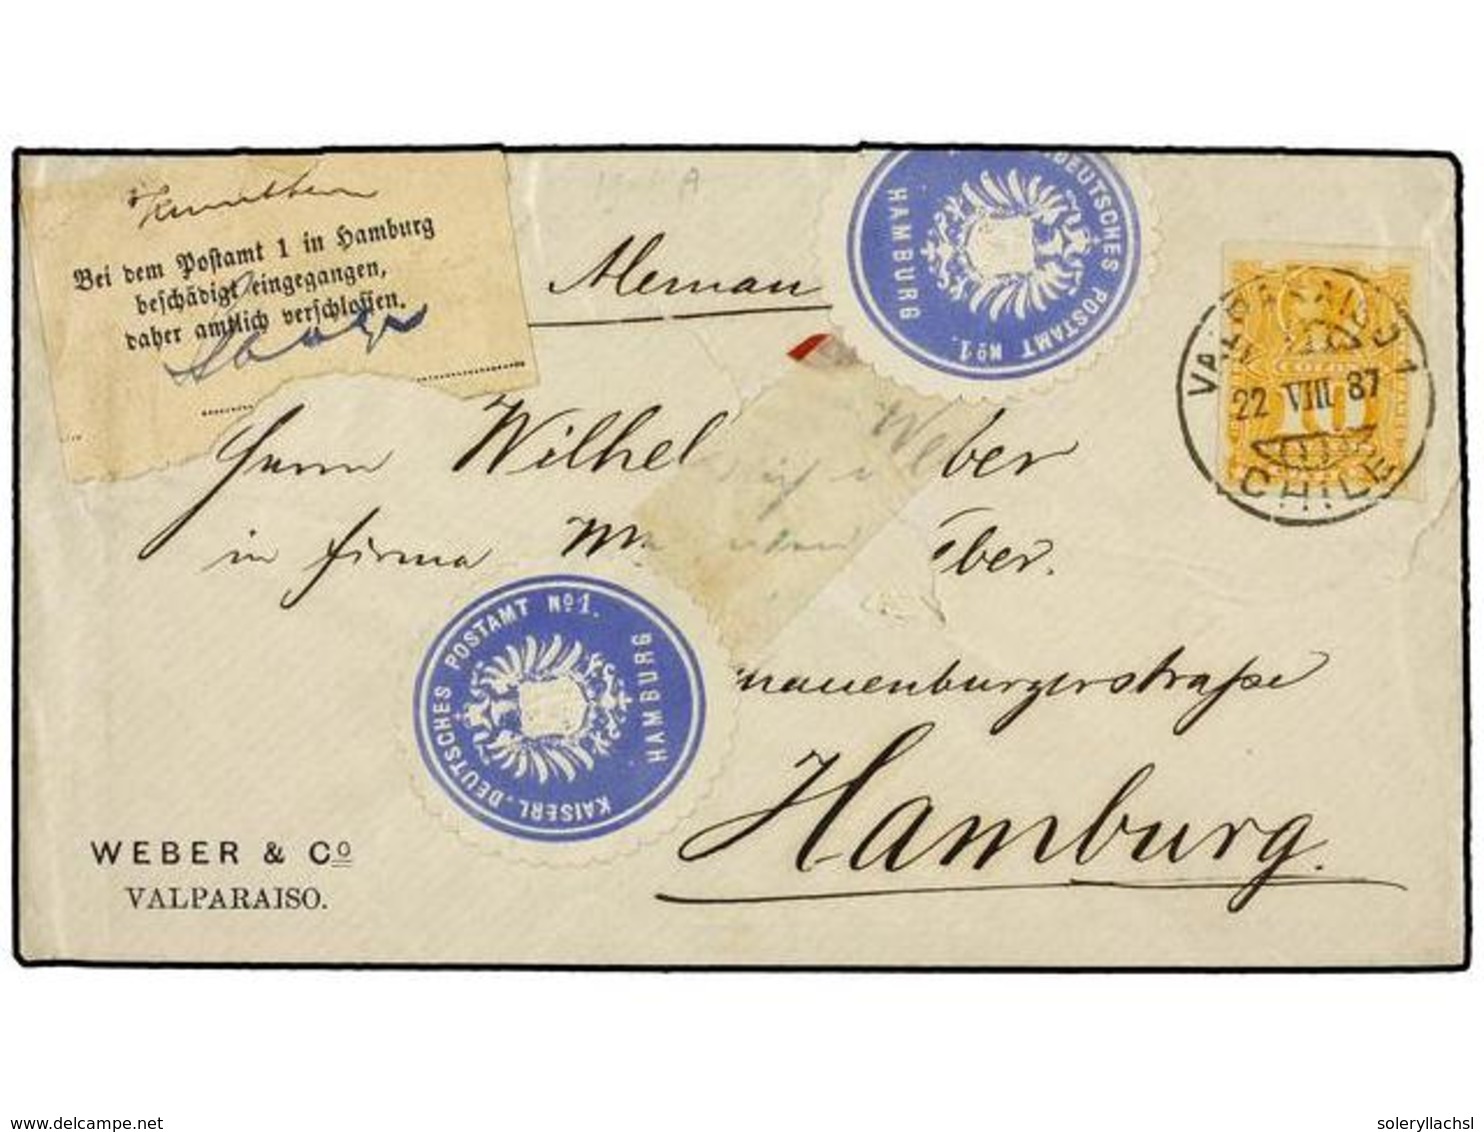 Bei dem Postamt 1 in Hamburg
beschädigt eingegangen,
daher amtlich verschlossen.
DEUTSCHES POSTAMT Nº1.
HAMBURG
VALPARAISO 1
22 VIII 87
10
CHILE
Herrn Wilhel Weber
in firma
KAISERL. DEUTSCHES POSTAMT Nº1.
HAMBURG
Hamburg.
WEBER & Cº
VALPARAISO.
delcampe.net
soleryllachsl